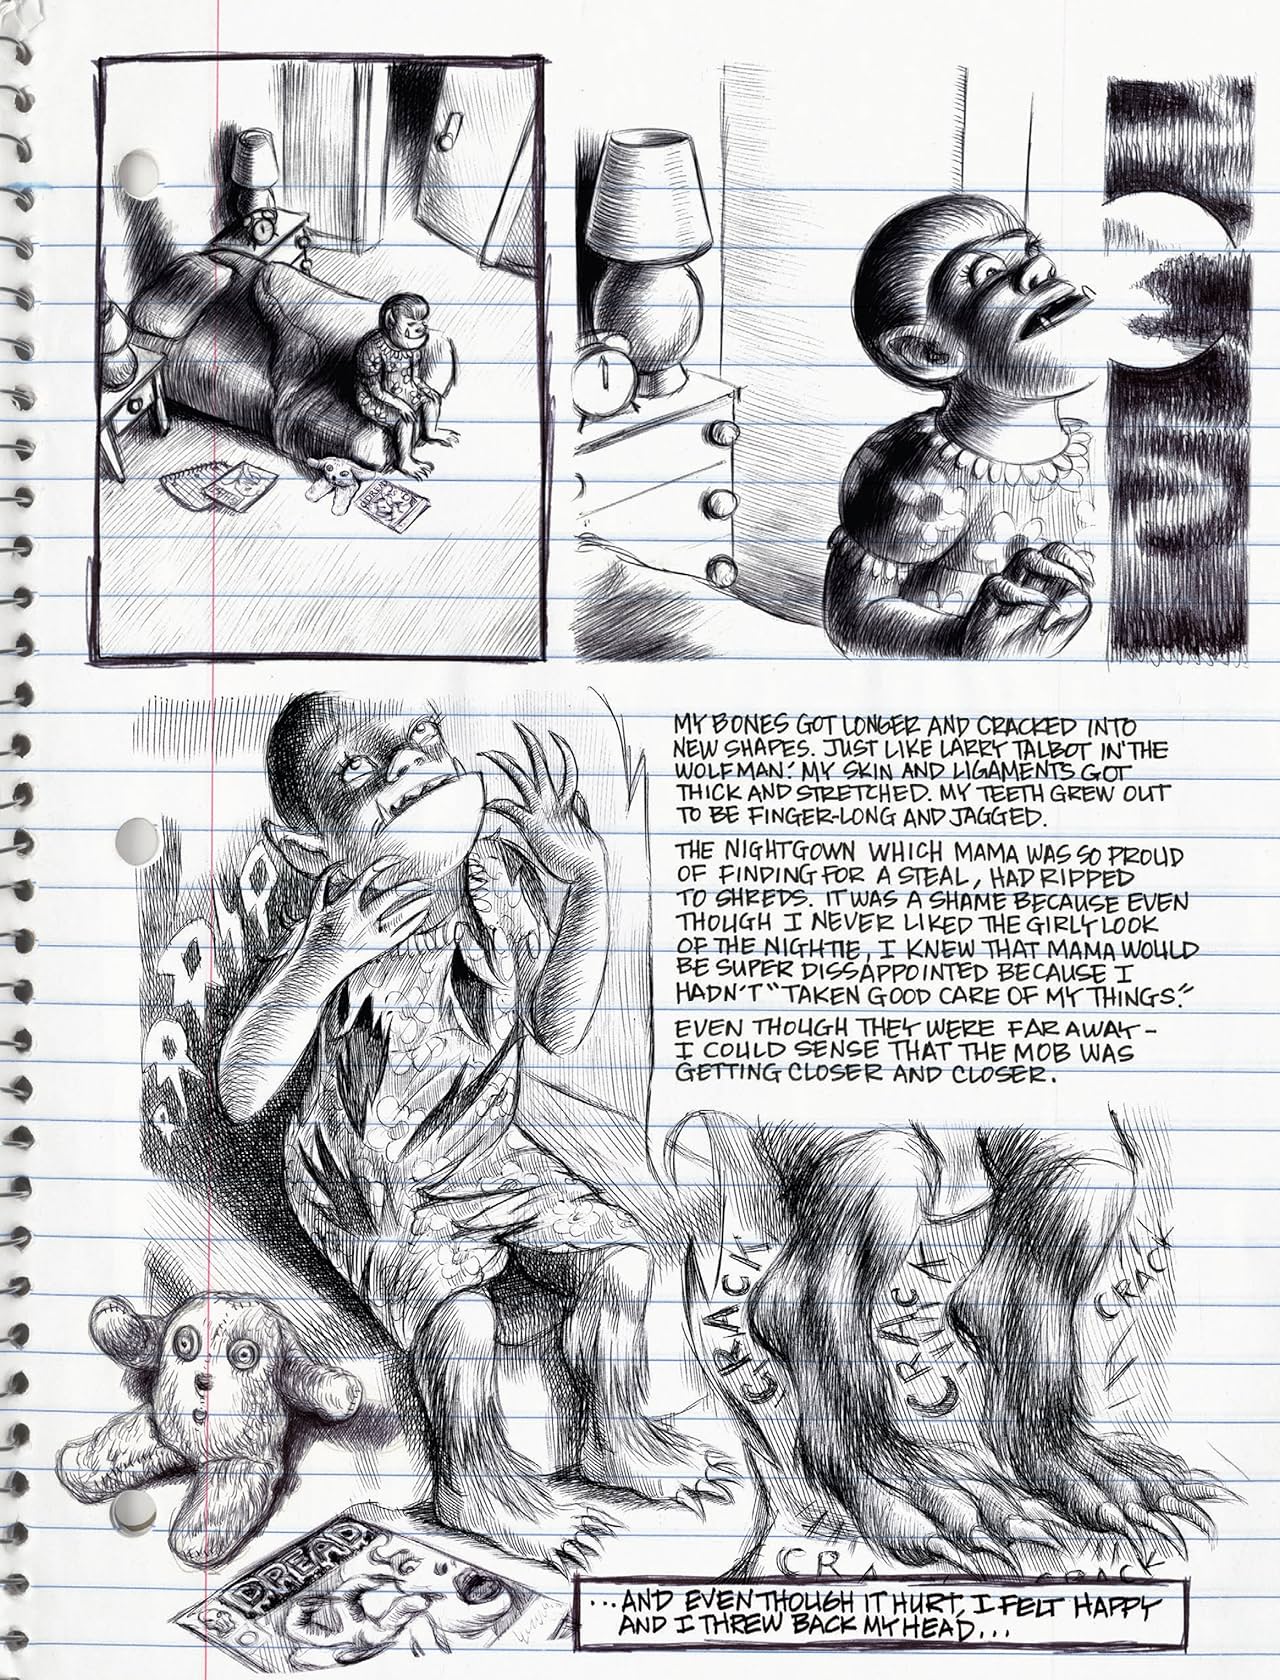 MY BONES GOT LONGER AND CRACKED INTO
NEW SHAPES. JUST LIKE LARRY TALBOT IN 'THE
WOLFMAN.' MY SKIN AND LIGAMENTS GOT
THICK AND STRETCHED. MY TEETH GREW OUT
TO BE FINGER-LONG AND JAGGED.
THE NIGHTGOWN WHICH MAMA WAS SO PROUD
OF FINDING FOR A STEAL, HAD RIPPED
TO SHREDS. IT WAS A SHAME BECAUSE EVEN
THOUGH I NEVER LIKED THE GIRLY LOOK
OF THE NIGHTIE, I KNEW THAT MAMA WOULD
BE SUPER DISSAPPOINTED BECAUSE I
HADN'T "TAKEN GOOD CARE OF MY THINGS."
EVEN THOUGH THEY WERE FAR AWAY-
I COULD SENSE THAT THE MOB WAS
GETTING CLOSER AND CLOSER.
CRACK
CRACK
CRACK
DREAD
CRA
CRACK
...AND EVEN THOUGH IT HURT, I FELT HAPPY
AND I THREW BACK MY HEAD...